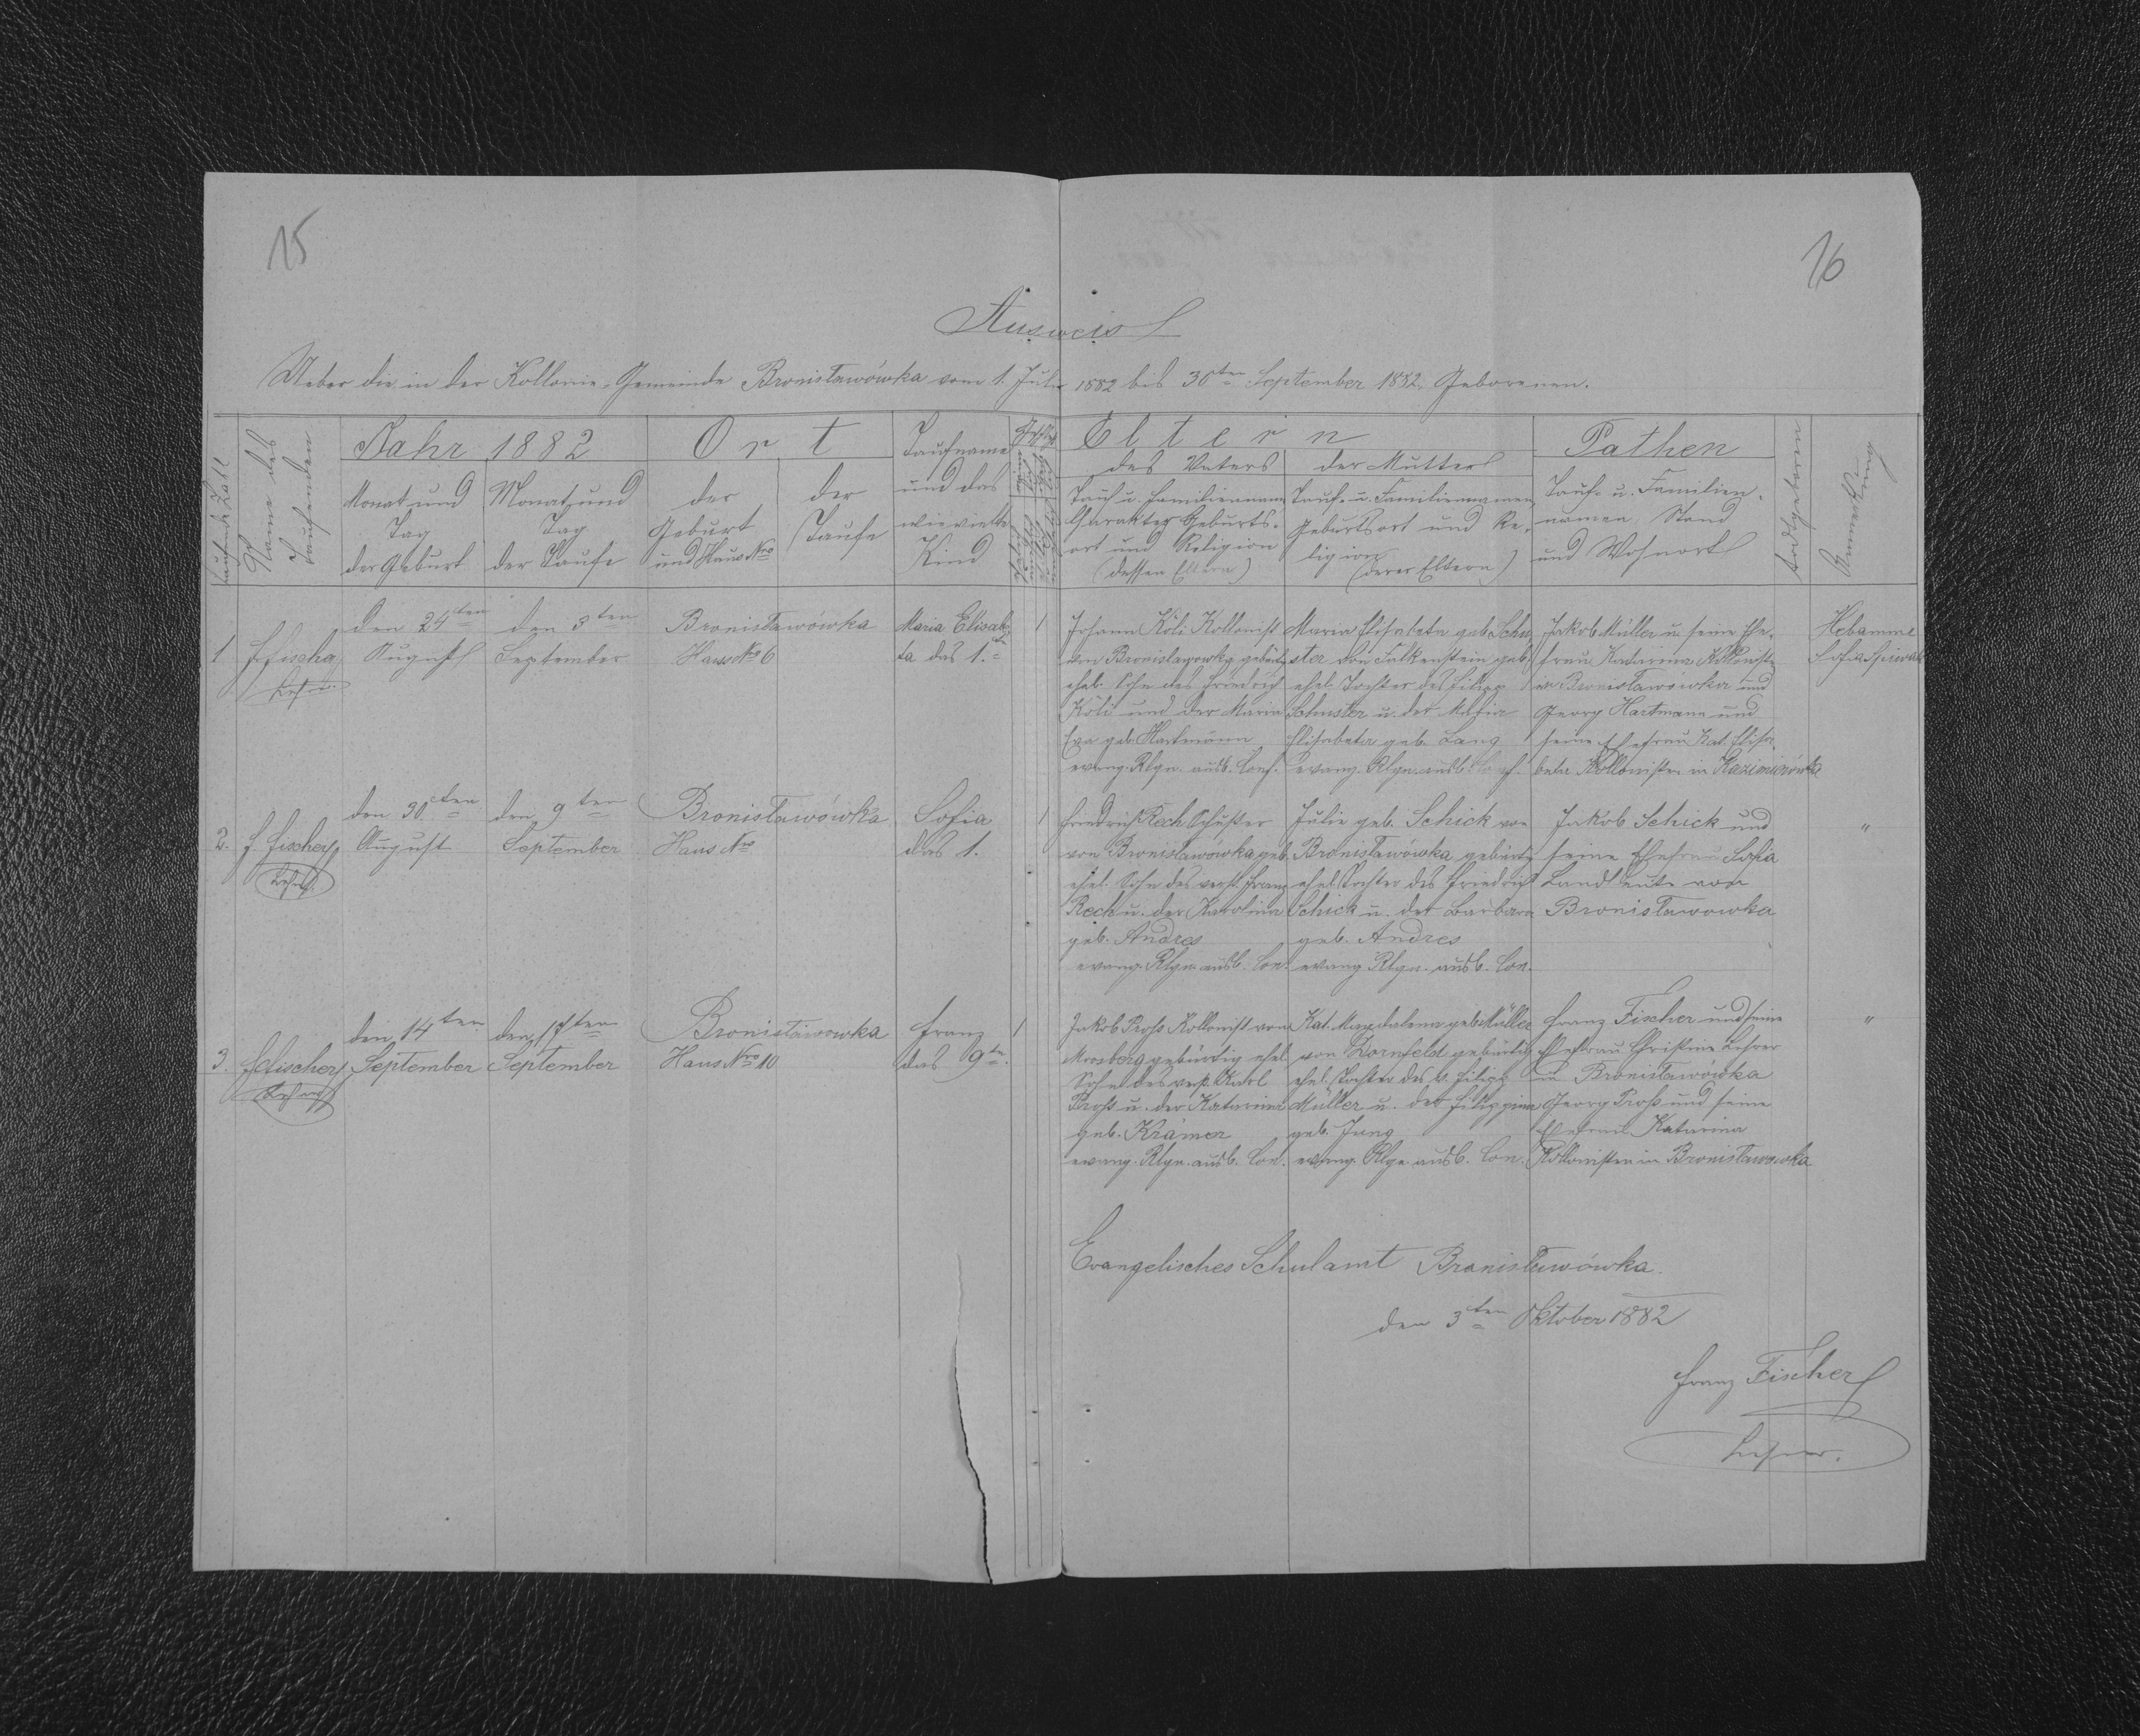 15
16
Ausweis
Ueber die in der Kollonie-Gemeinde Bronisławówka vom 1. Juli 1882 bis 30ten September 1882 Geborenen.
Laufende Zahl
Name des Taufenden
Jahr 1882
Monat und Tag der Geburt
Monat und Tag der Taufe
Ort
der Geburt und Haus Nro
der Taufe
Taufname und das wievielte Kind
Eltern
des Vaters
Tauf u. Familienname Charakter Geburts-
ort und Religion
(dessen Eltern)
der Mutter
Tauf- u. Familiennamen
Geburtsort und Re-
ligion
(derer Eltern)
Pathen
Tauf- u. Familien-
namen, Stand
und Wohnort
todtgeboren
Anmerkung
1
F. Fischer
Lehrer
den 24ten
August
den 3ten
September
Bronisławówka
Haus Nro 6
Maria Elisabe-
ta das 1.te
1
Johann Köli Kollonist
von Bronisławówka gebürt.
ehel. Sohn des Friedrich
Köli und der Maria
Eva geb. Hartmann
evang. Rlgn. augsb. Conf.
Maria Elisabeta geb. Schu-
ster von Falkenstein geb.
ehel. Tochter des Filipp
Schuster u. der Maria
Elisabeta geb. Lang
evang. Rlgn. augsb. Conf.
Jakob Müller u. seine Ehe-
frau Katarina Kollonisten
in Bronisławówka und
Georg Hartmann und
seine Ehefrau Kat. Elisa-
beta Kollonisten in Kazimirówka
Hebamme
Sofia Spiwak
2.
F. Fischer
Lehrer
den 30ten
August
den 9ten
September
Bronisławówka
Haus Nro
Sofia
das 1.
1
Friedrich Rech Schuster
von Bronisławówka geb.
ehel. Sohn des verst. Franz
Rech u. der Karolina
geb. Andres
evang. Rlgn. augsb. Con.
Julie geb. Schick von
Bronisławówka gebürtig
ehel. Tochter des Friedrich
Schick u. der Barbara
geb. Andres
evang. Rlgn. augsb. Con.
Jakob Schick und
seine Ehefrau Sofia
Landleute von
Bronisławowka
"
3.
F. Fischer
Lehrer
den 14ten
September
den 17ten
September
Bronisławowka
Haus Nro 10
Franz
das 9te.
1
Jakob Proß Kollonist von
Moosberg gebürtig ehel.
Sohn des verst. Karl
Proß u. der Katarina
geb. Krämer
evang. Rlgn. augsb. Con.
Kat. Magdalena geb. Müller
von Dornfeld gebürtig
ehel. Tochter des v. Filipp
Müller u. der Filippina
geb. Jung
evang. Rlgn. augsb. Con.
Franz Fischer und seine
Ehefrau Christine Lehrer
in Bronisławówka
Georg Proß und seine
Ehefrau Katarina
Kollonisten in Bronisławowka
"
Evangelisches Schulamt Bronisławówka.
den 3ten Oktober 1882
Franz Fischer
Lehrer.